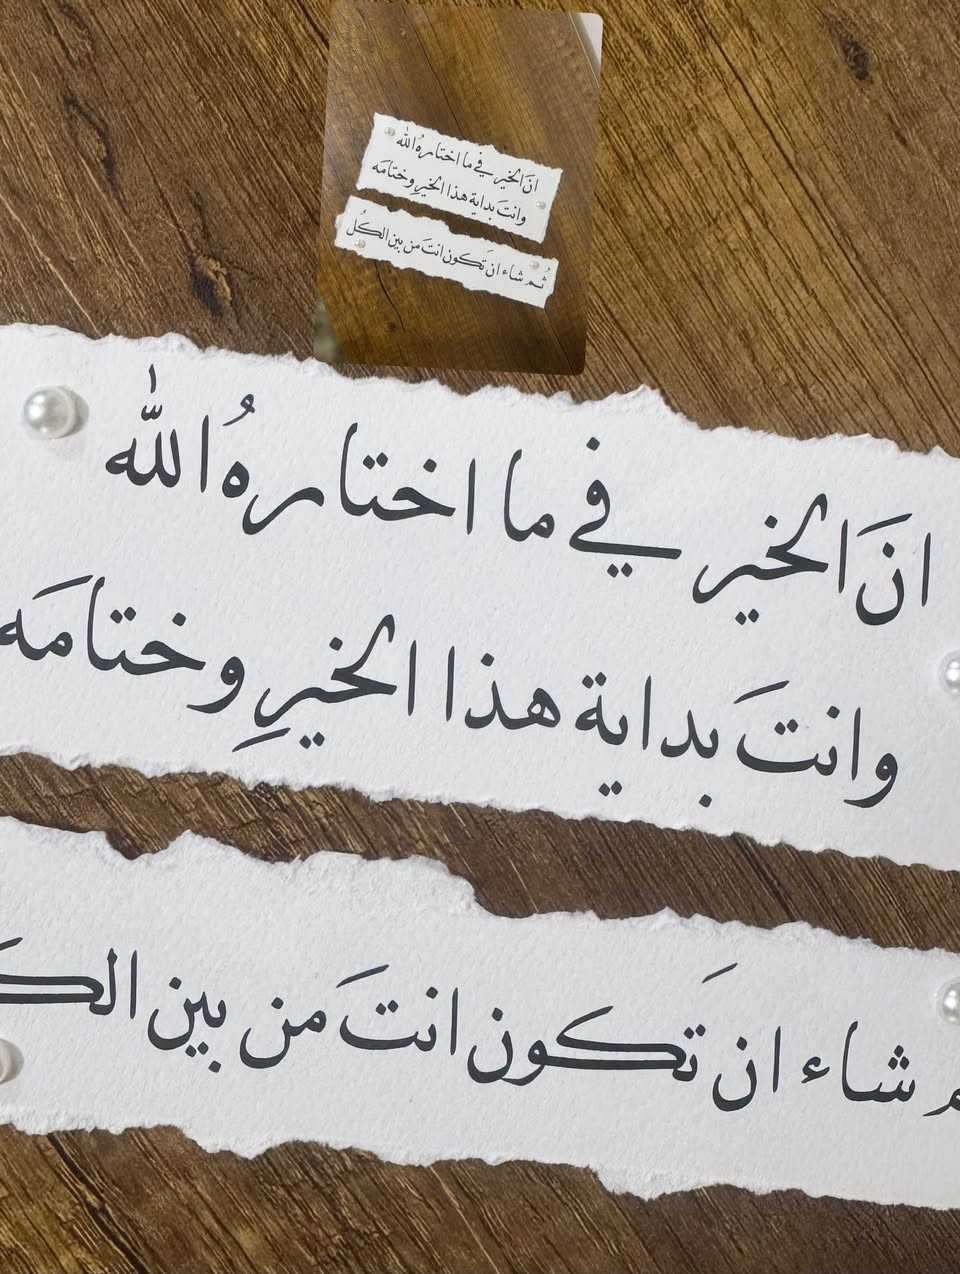 انَ الخير في ما اختارهُ اللّٰه
وانتَ بداية هذا الخيرِ وختامَه
ثُم شاء ان تَكون انتَ من بين الكُل
انَ الخير في ما اختارهُ اللّٰه
وانتَ بداية هذا الخيرِ وختامَه
شاء ان تَكون انتَ من بين